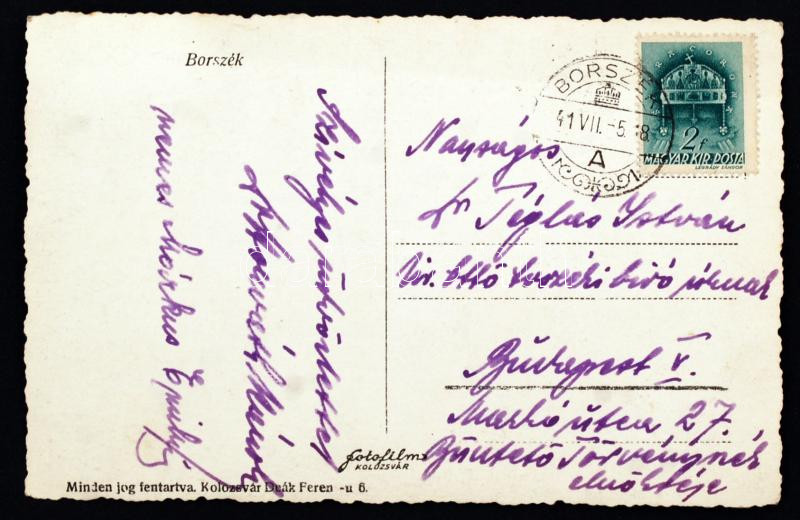 Borszék
Szívélyes üdvözlettel
Horváth
nemes Márkus Emily
fotofilm
KOLOZSVÁR
Minden jog fentartva. Kolozsvár Deák Feren -u 6.
BORSZÉK
41 VII. -5. 18
A
SZENT KORONA
2f
MAGYAR KIR. POSTA
LÉGRÁDY SÁNDOR
Nagyságos
Dr Téglás István
kir. ítélő táblai bíró úrnak
Budapest V.
Markó utca 27.
Büntető Törvényszék
elnöksége